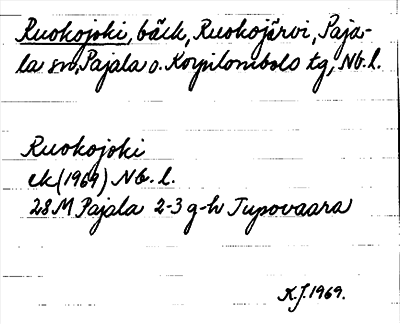 Ruokojoki, bäck, Ruokojärvi, Paja-
la sn, Pajala o. Korpilombolo tg, Nb. l.
Ruokojoki
ek (1969) Nb. l.
28M Pajala 2-3 g-h Tupovaara
K.J. 1969.